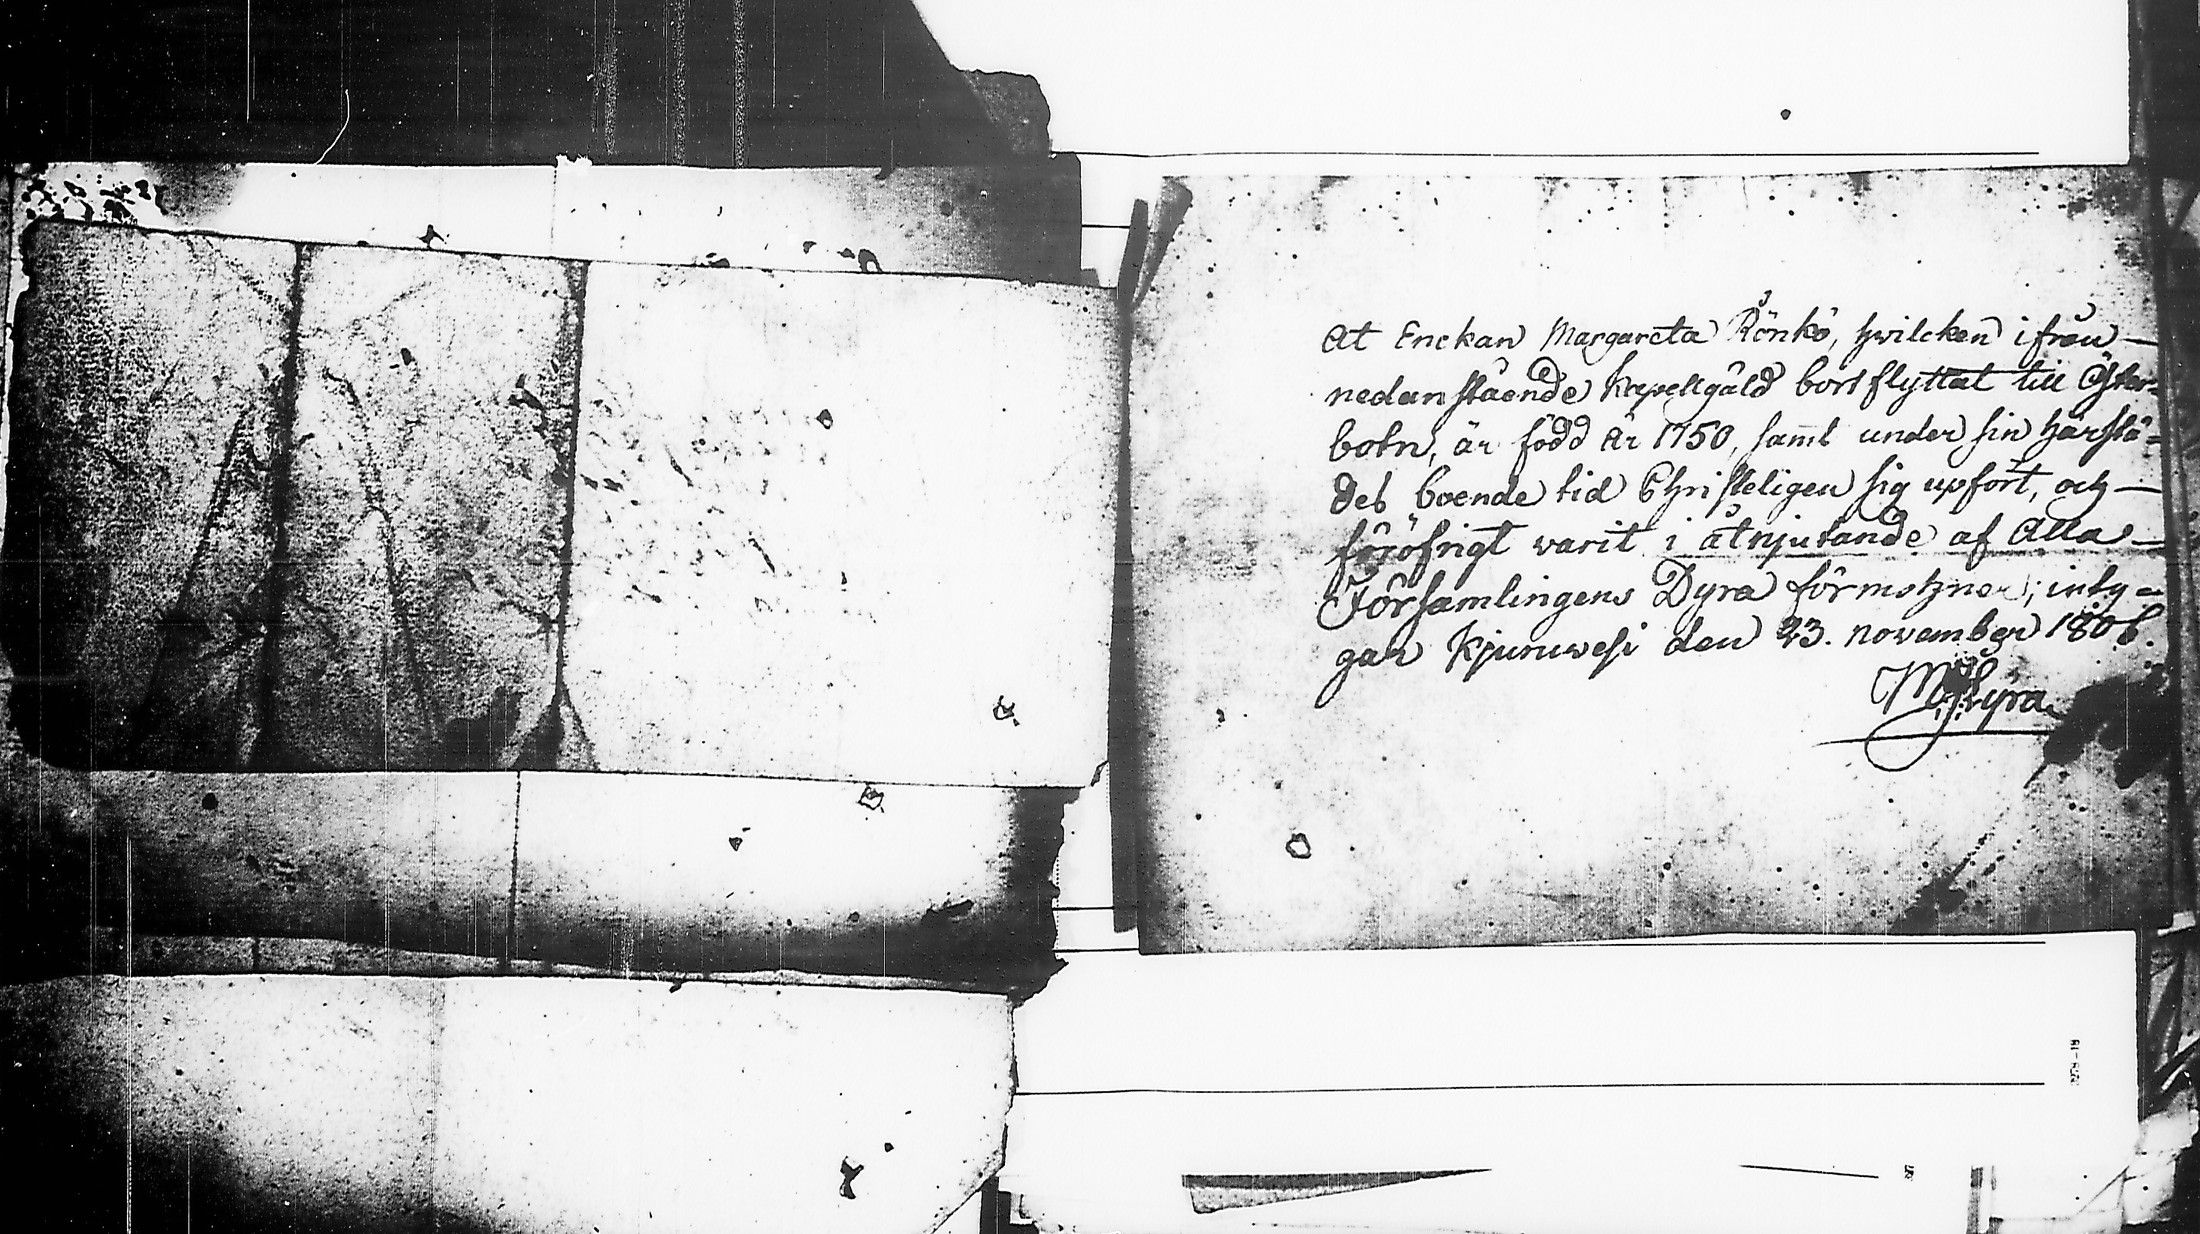 At Enckan Margareta Rönkö, hwilcken ifrån
nedanstående Kapellgäld bortflyttat till Öster-
botn, är född år 1750, samt under sin härstä-
des boende tid Christeligen sig upfört, och
föröfrigt warit i åtnjutande af Alla
Församlingens Dyra förmohner; inty-
gar Kjuruwesi den 23. November 1806.
Lyra